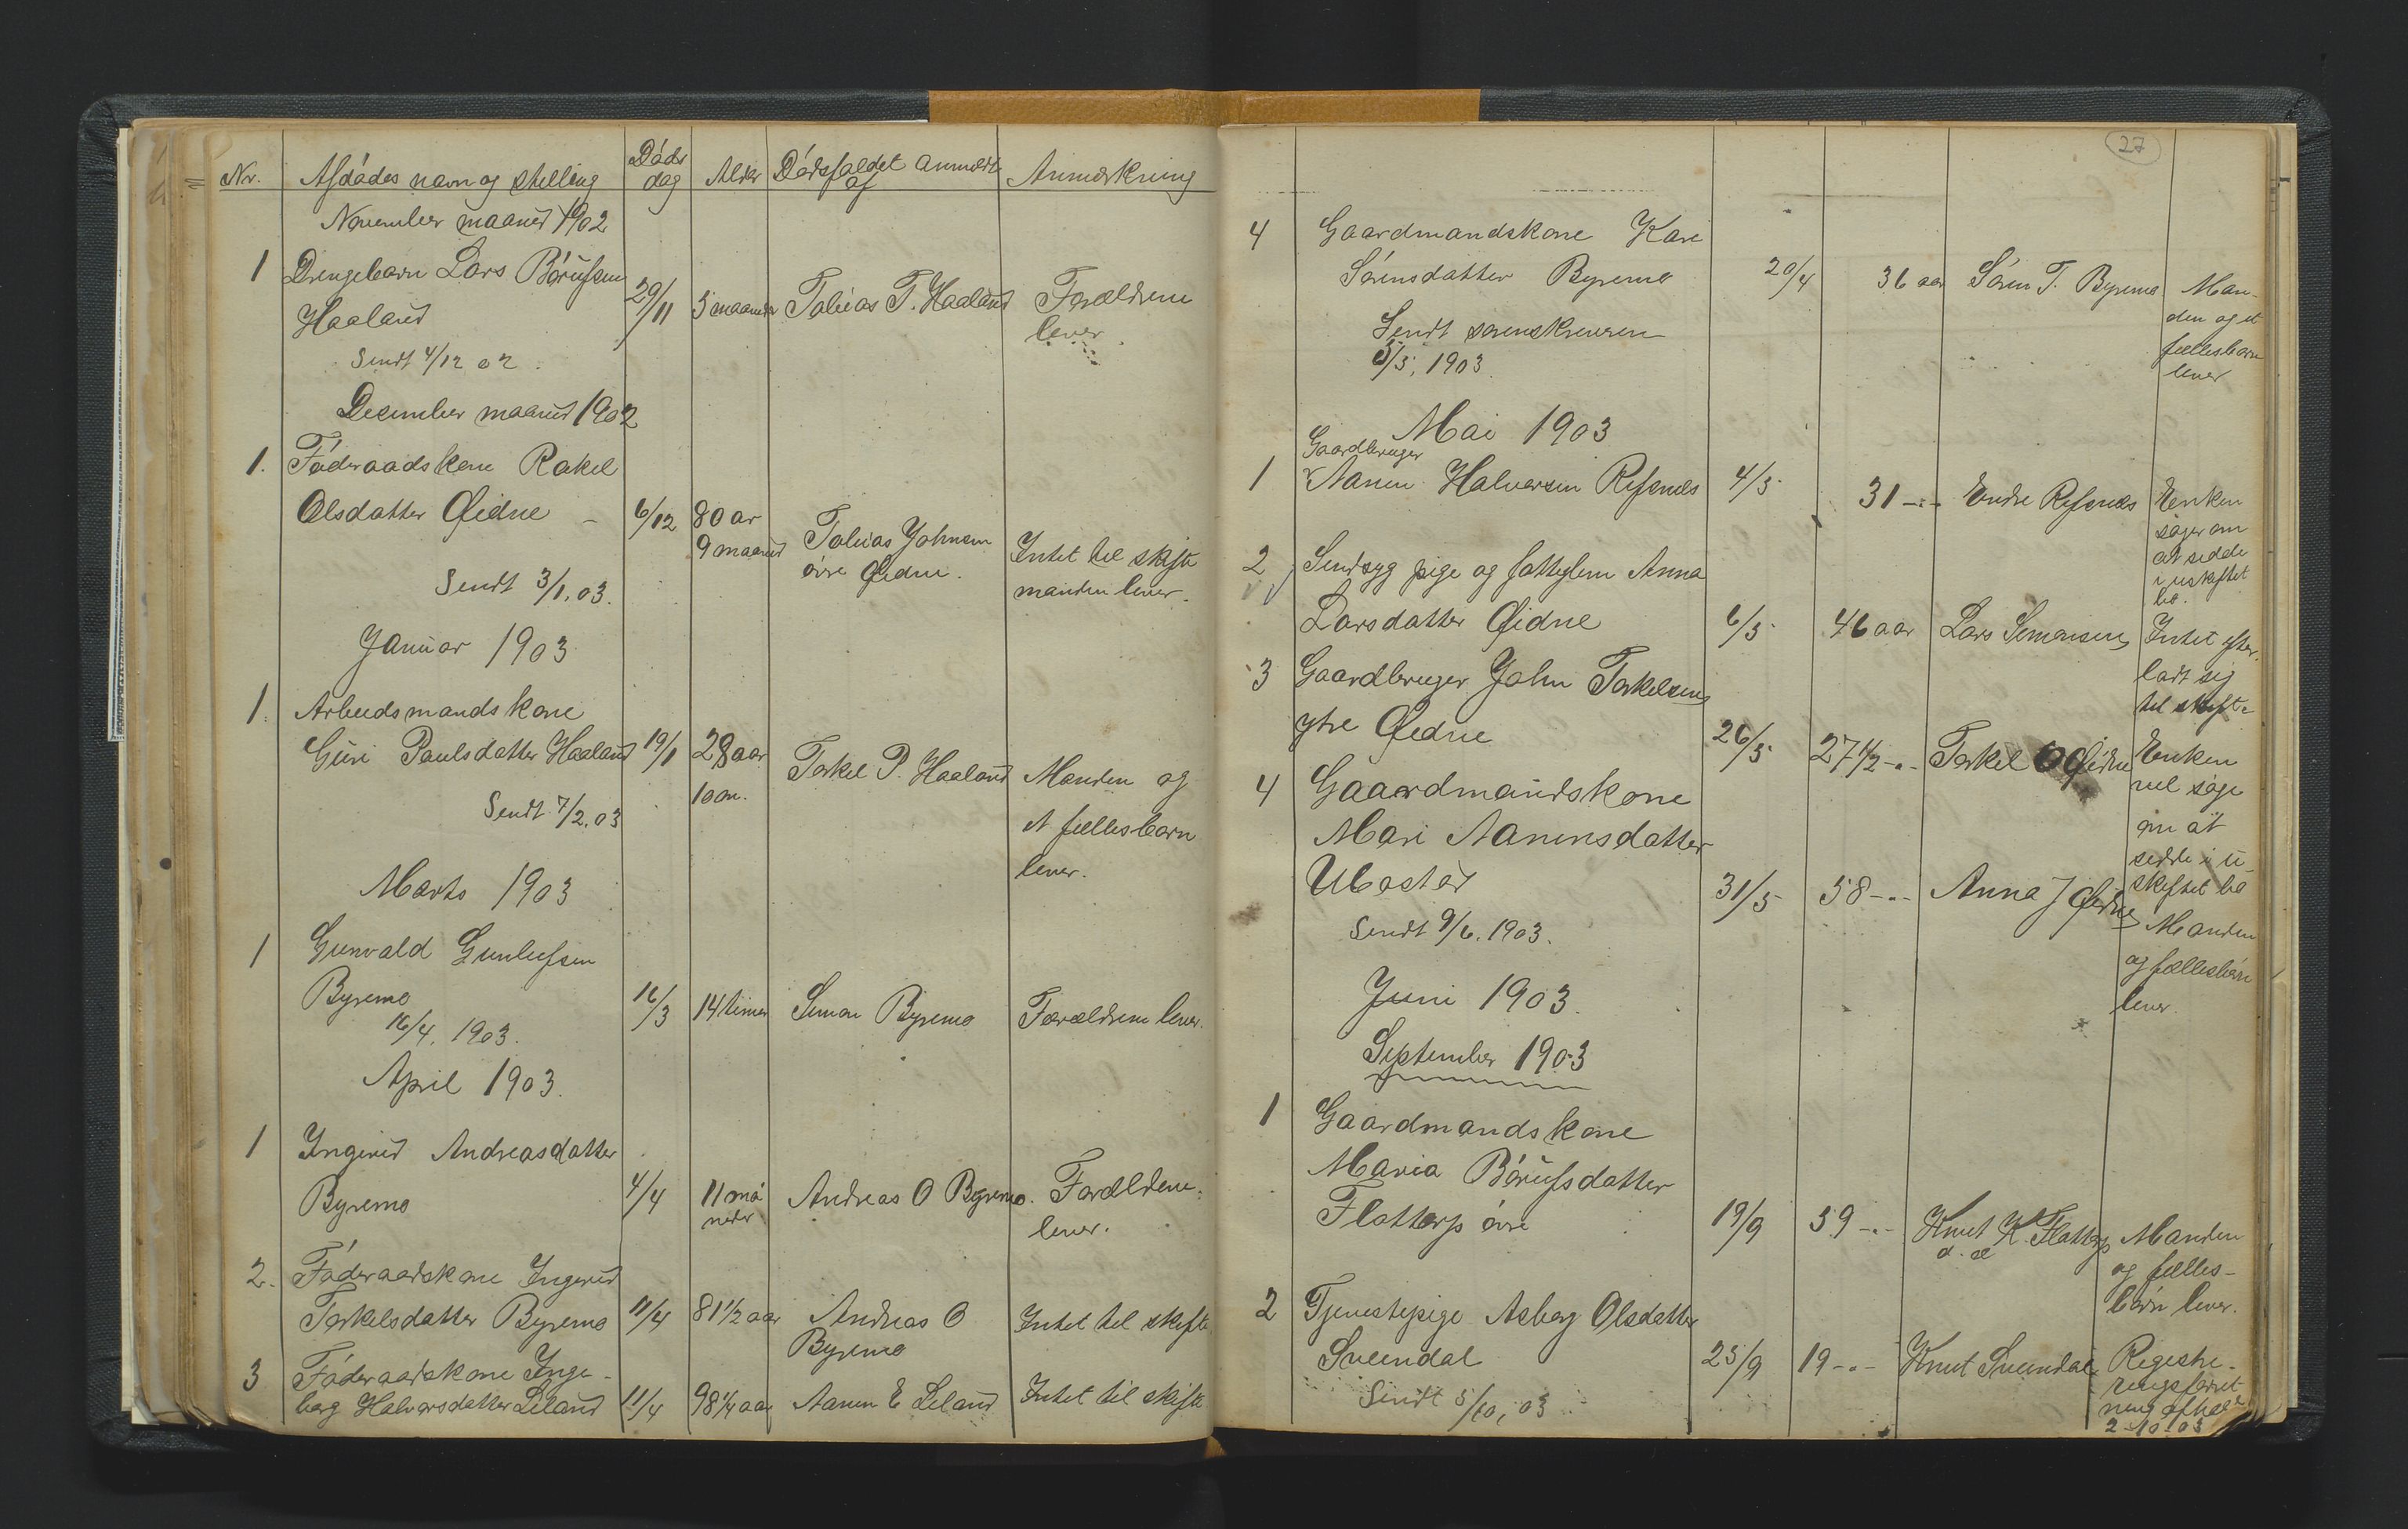 Nr. Afdódes navn og stelling Dóds dag Alder Dódsfaldet anmeldt af Anmærkning
November maaned 1902
1 Drengebarn Lars Bórufsen
Haaland 29/11 5 maaneder Tobias T. Haaland Forældrene
lever.
Sendt 4/12 02.
Desember maaned 1902
1. Fóderaadskone Rakel
Olsdatter Øidne - 6/12 80 ar
9 maaned Tobias Johnsen
óvre Øidne.
Intet til skifte
manden lever.
Sendt 3/1, 03.
Januar 1903
1. Arbeidsmandskone
Guri Paulsdatter Haaland 19/1 28 aar
10 m. Torkel P. Haaland Manden og
et fællesbarn
lever.
Sendt 7/2, 03
Marts 1903
1 Gunvald Gunlufsen
Byremo 16/3 14 timer Simon Byremo Forældrene lever.
16/4, 1903.
April 1903.
1 Ingerid Andreasdatter
Byremo 4/4 11 må
neder Andreas O Byremo. Forældrene
lever.
2. Fóderaadskone Ingerid
Torkelsdatter Byremo 11/4 81 1/2 aar Andreas O
Byremo
Intet til skifte
3 Fóderaadskone Inge-
borg Halvorsdatter Leland 11/4 98 1/4 aar Aanen E Leland Intet til skifte
27
4 Gaardmandskone Kari
Sórensdatter Byremo 20/4 36 aar Sóren T. Byremo Man-
den og et
fællesbarn
lever
Sendt sorenskriveren
5/5, 1903.
Mai 1903
Gaardbruger
1 Aanen Halvorsen Refsnes 4/5 31 -"- Endre Refsnes Enken
sóger om
at sedde
i uskiftet
bo.
2 Sindsyg pige og fattiglem Anna
Larsdatter Øidne 6/5 46 aar Lars Simonsen Intet efter
ladt sig
til skifte
3 Gaardbruger John Torkelsen
ytre Øidne 26/5 27 1/2 -"- Torkel O Øidne Enken
vil sóge
om at
sedde i u
skiftet bo
4 Gaardmandskone
Mari Aanensdatter
Ubostad 31/5 58 -"- Anna J Øidne Manden
og fællesbórn
lever.
Sendt 9/6. 1903.
Juni 1903.
September 1903
1 Gaardmandskone
Maria Bórufsdatter
Flottorp óvre 19/9 59 -"- Knut K. Flottorp
d. æ
Manden
og fælles-
bórn lever.
2 Tjenestepige Asborg Olsdatter
Sveindal 25/9 19 -"- Knut Sveindal Registre-
ringsforret-
ning afholdt
2-10-03
Sendt 5/10, 03